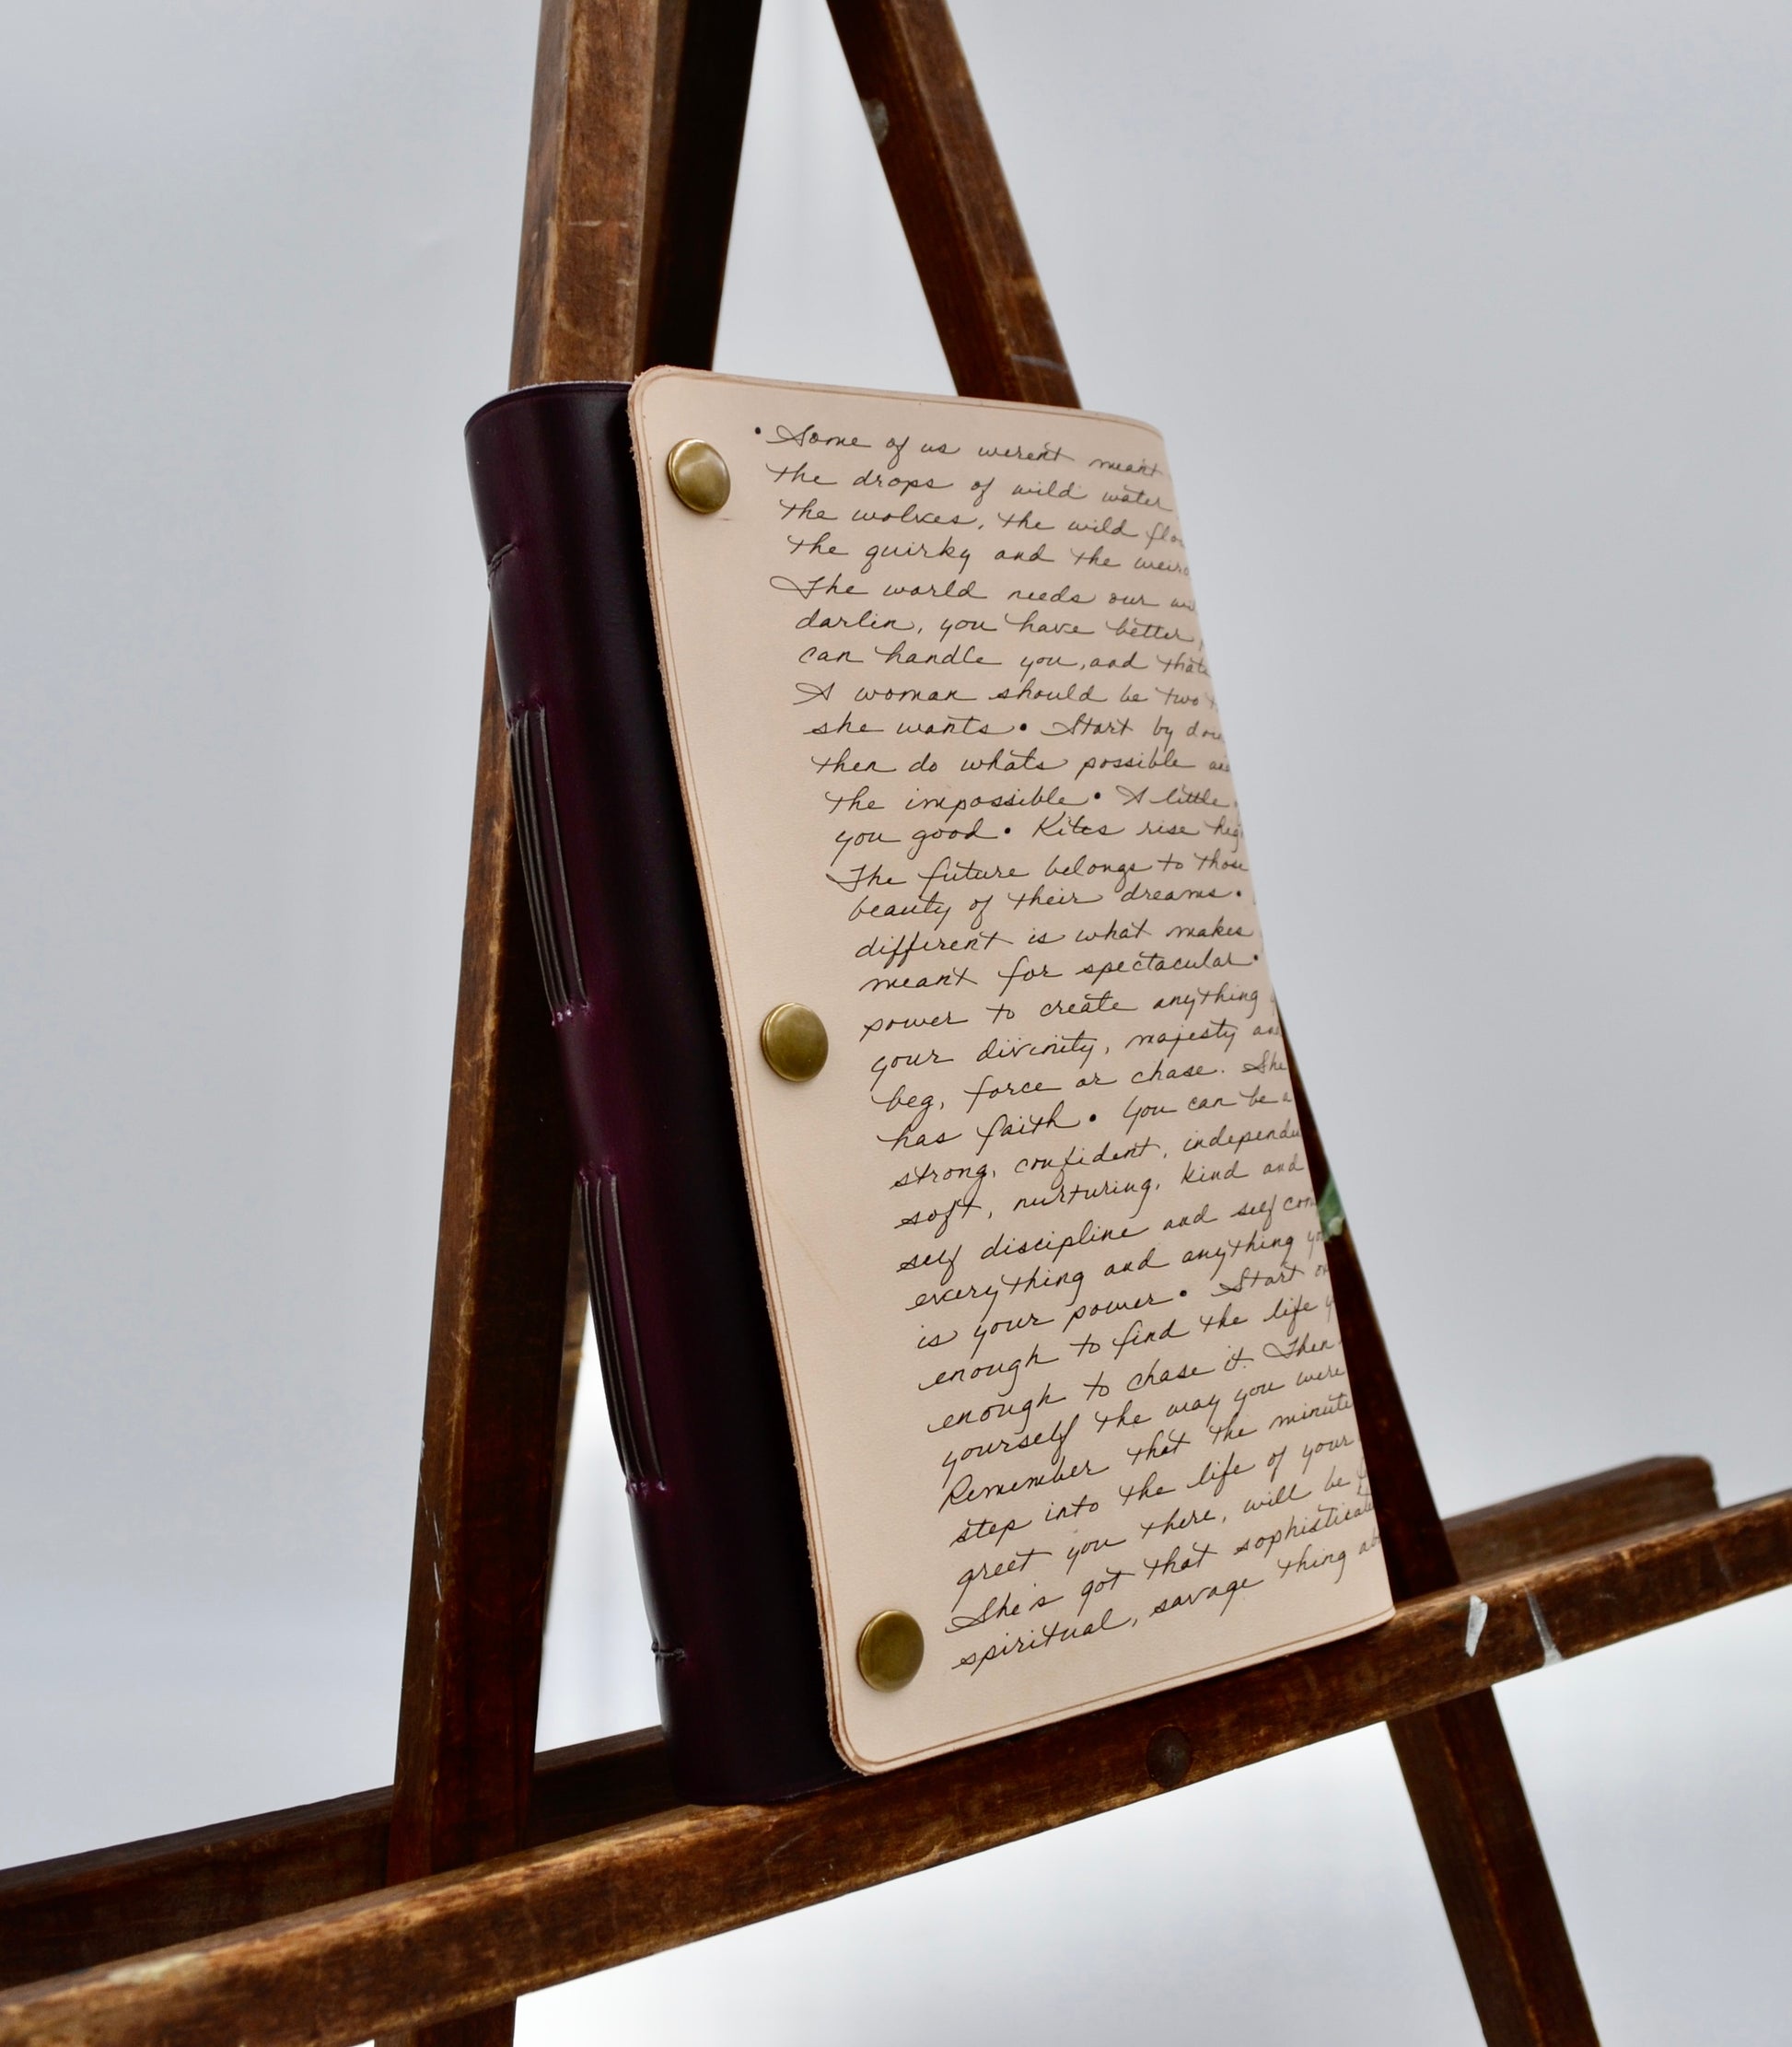 • Some of us weren't meant
the drops of wild water
the wolves, the wild
the quirky and the
The world needs our
darlin, you have better
can handle you, and
A woman should be two
she wants • Start by
then do whats possible
the impossible • A little
you good • Kites rise
The future belongs to those
beauty of their dreams •
different is what makes
meant for spectacular •
power to create anything
your divinity, majesty
beg, force or chase. She
has faith • You can be a
strong, confident,
soft, nurturing, kind and
self discipline and self
everything and anything
is your power • Start
enough to find the life
enough to chase it. Then
yourself the way you were
Remember that the minute
step into the life of your
greet you there, will be
She's got that
spiritual, savage thing